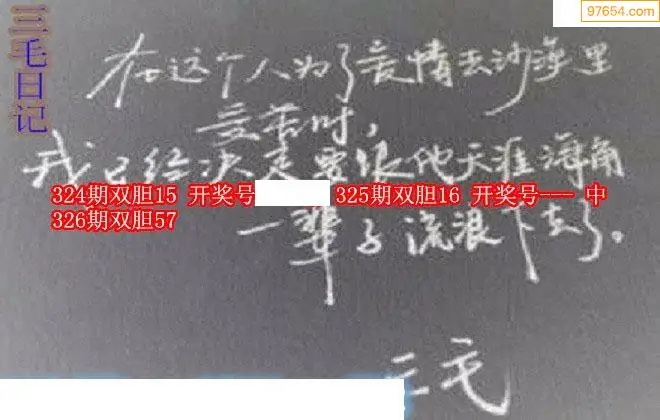 三毛日记
97654.com
在这个人为了爱情去沙漠里
受苦时，
我已经决定要跟他天涯海角
324期双胆15 开奖号 325期双胆16 开奖号--- 中
326期双胆57
一辈子流浪下去了。
三毛